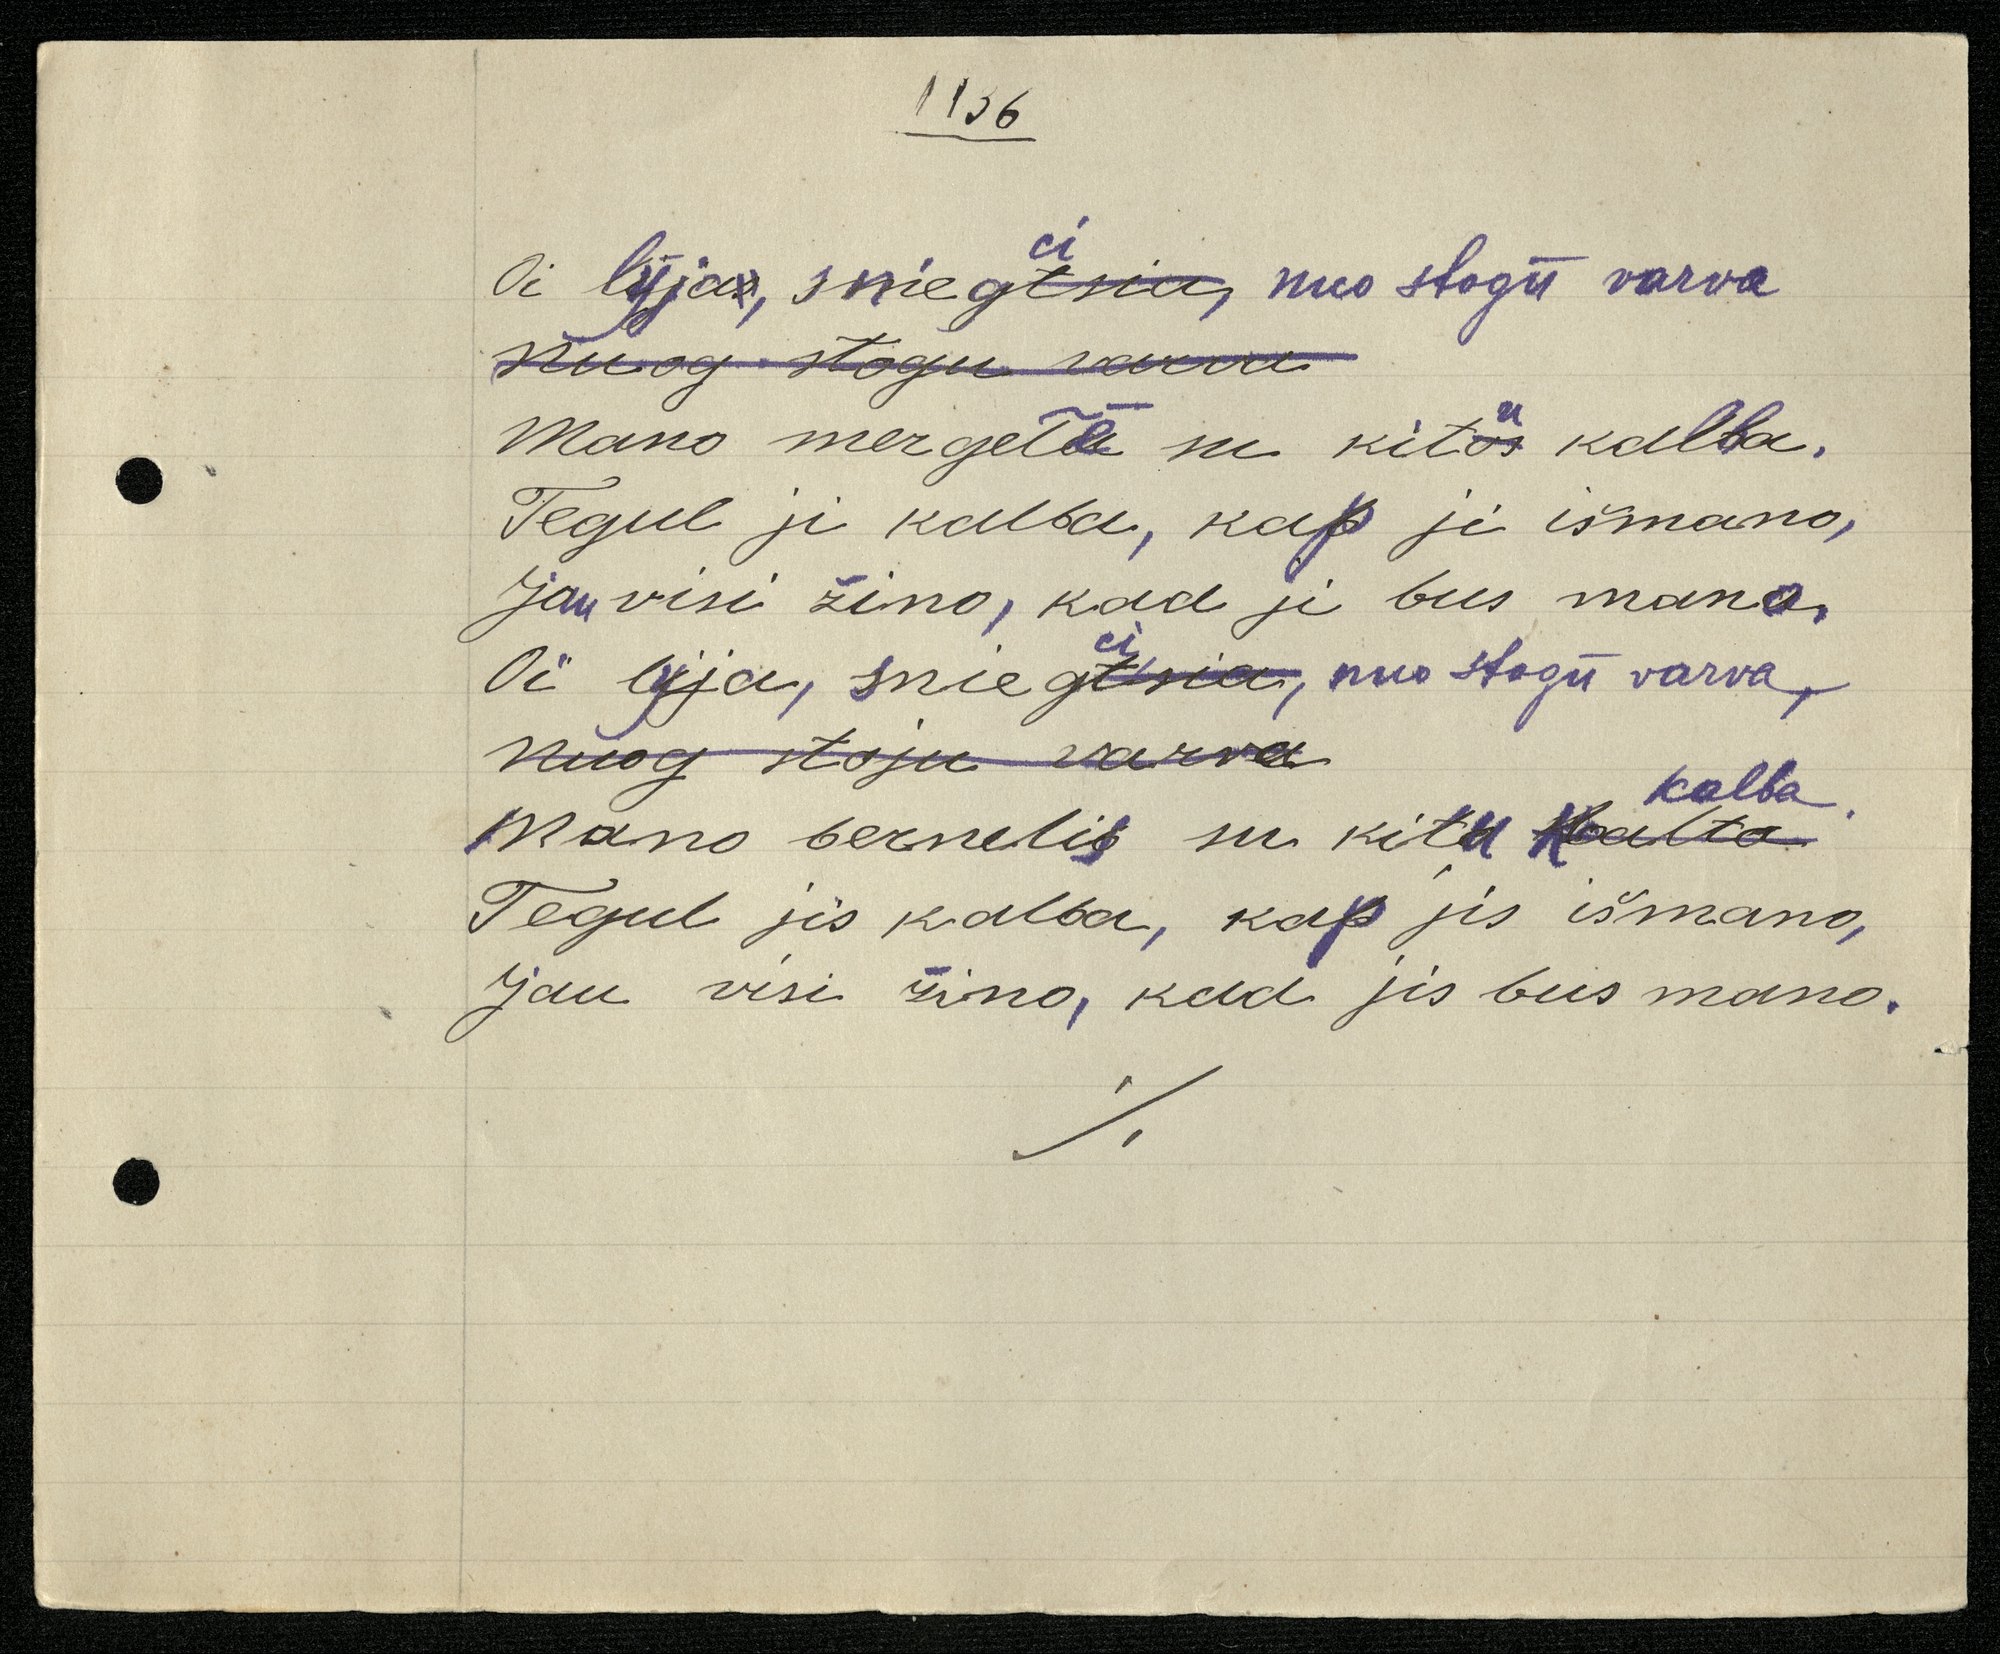 1136
Oi lyja, sniegci, nuo stogū varva
nuog stogu varva
Mano mergelē su kitu kalba.
Tegul ji kalba, kap ji išmano,
Jau visi žino, kad ji bus mano.
Oi lyja, sniegci, nuo stogū varva,
nuog stoju varva
Mano bernelis su kitu kalba.
Tegul jis kalba, kap jis išmano,
Jau visi žino, kad jis bus mano.